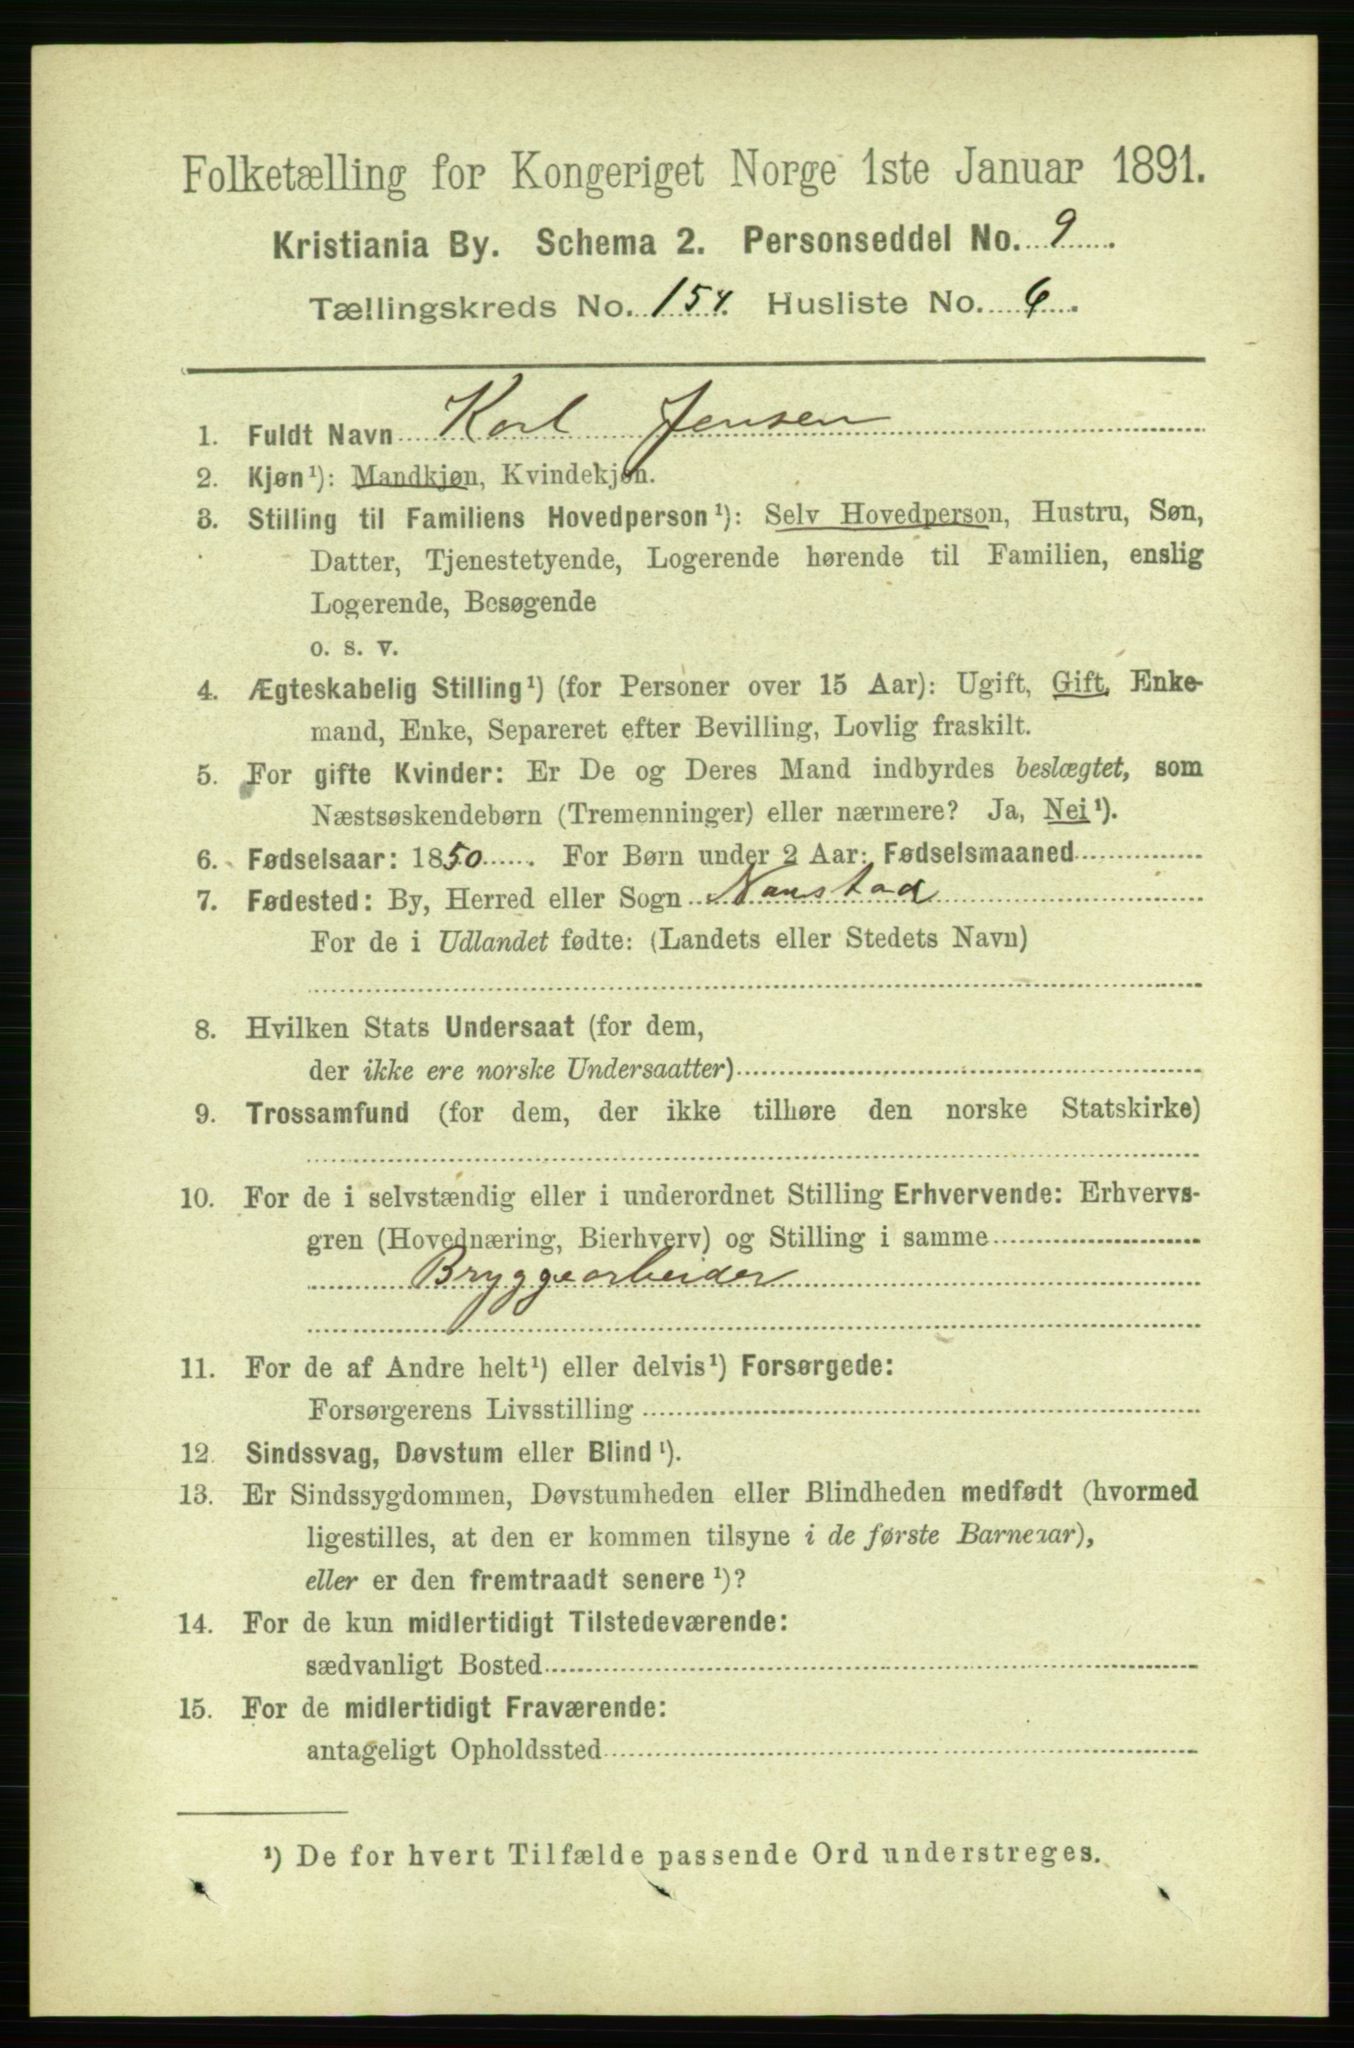 Folketælling for Kongeriget Norge 1ste Januar 1891.
Kristiania By. Schema 2. Personseddel No. 9
Tællingskreds No. 154. Husliste No. 6.
1. Fuldt Navn Karl Jensen
2. Kjøn¹): Mandkjøn, Kvindekjøn.
3. Stilling til Familiens Hovedperson¹): Selv Hovedperson, Hustru, Søn,
Datter, Tjenestetyende, Logerende hørende til Familien, enslig
Logerende, Besøgende
o. s. v.
4. Ægteskabelig Stilling¹) (for Personer over 15 Aar): Ugift, Gift, Enke-
mand, Enke, Separeret efter Bevilling, Lovlig fraskilt.
5. For gifte Kvinder: Er De og Deres Mand indbyrdes beslægtet, som
Næstsøskendebørn (Tremenninger) eller nærmere? Ja, Nei¹).
6. Fødselsaar: 1850. For Børn under 2 Aar: Fødselsmaaned
7. Fødested: By, Herred eller Sogn Nanstad
For de i Udlandet fødte: (Landets eller Stedets Navn)
8. Hvilken Stats Undersaat (for dem,
der ikke ere norske Undersaatter)
9. Trossamfund (for dem, der ikke tilhøre den norske Statskirke)
10. For de i selvstændig eller i underordnet Stilling Erhvervende: Erhvervs-
gren (Hovednæring, Bierhverv) og Stilling i samme
Bryggearbeider
11. For de af Andre helt¹) eller delvis¹) Forsørgede:
Forsørgerens Livsstilling
12. Sindssvag, Døvstum eller Blind¹).
13. Er Sindssygdommen, Døvstumheden eller Blindheden medfødt (hvormed
ligestilles, at den er kommen tilsyne i de første Barneaar),
eller er den fremtraadt senere¹)?
14. For de kun midlertidigt Tilstedeværende:
sædvanligt Bosted
15. For de midlertidigt Fraværende:
antageligt Opholdssted
¹) De for hvert Tilfælde passende Ord understreges.